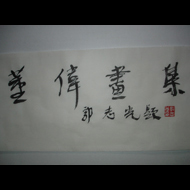 董偉畫集
郭志光題